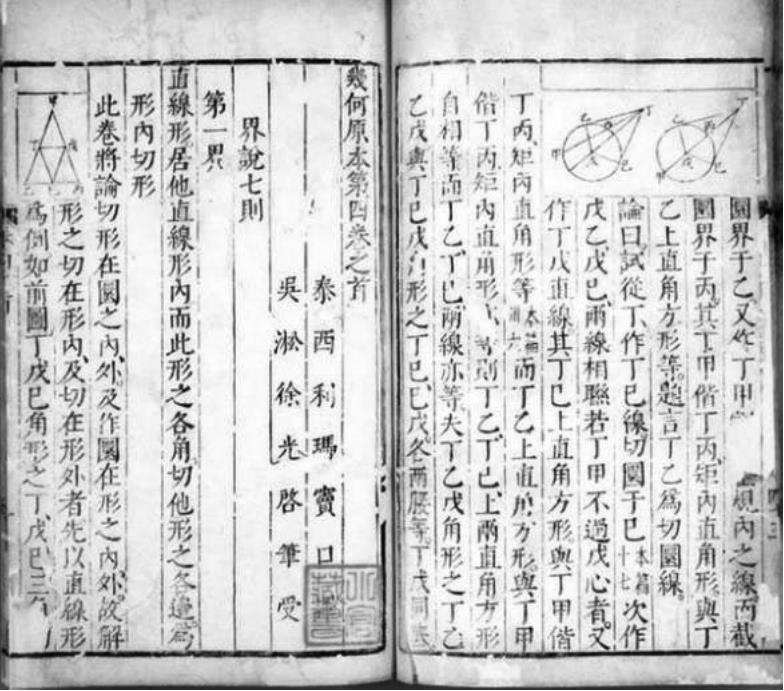 圜界于乙又作丁甲
規內之線丙截
圜界于丙其丁甲偕丁丙矩內直角形與丁
乙上直角方形等題言丁乙爲切圜線
論曰試從丁作丁巳線切圜于巳本篇十七次作
戊乙戊巳兩線相聯若丁甲不過戊心者又
作丁戊直線其丁巳上直角方形與丁甲偕
丁丙矩內直角形等本篇卅六而丁乙上直角方形與丁甲
偕丁丙矩內直角形亦等則丁乙丁巳上兩直角方形
自相等而丁乙丁巳兩線亦等夫丁乙戊角形之丁乙
乙戊與丁巳戊角形之丁巳巳戊各兩腰等丁戊同底
幾何原本第四卷之首
泰西利瑪竇口
吳淞徐光啓筆受
界說七則
第一界
直線形居他直線形內而此形之各角切他形之各邊爲
形內切形
此卷將論切形在圜之內外及作圜在形之內外故解
形之切在形內及切在形外者先以直線形
爲例如前圖丁戊巳角形之丁戊巳三角